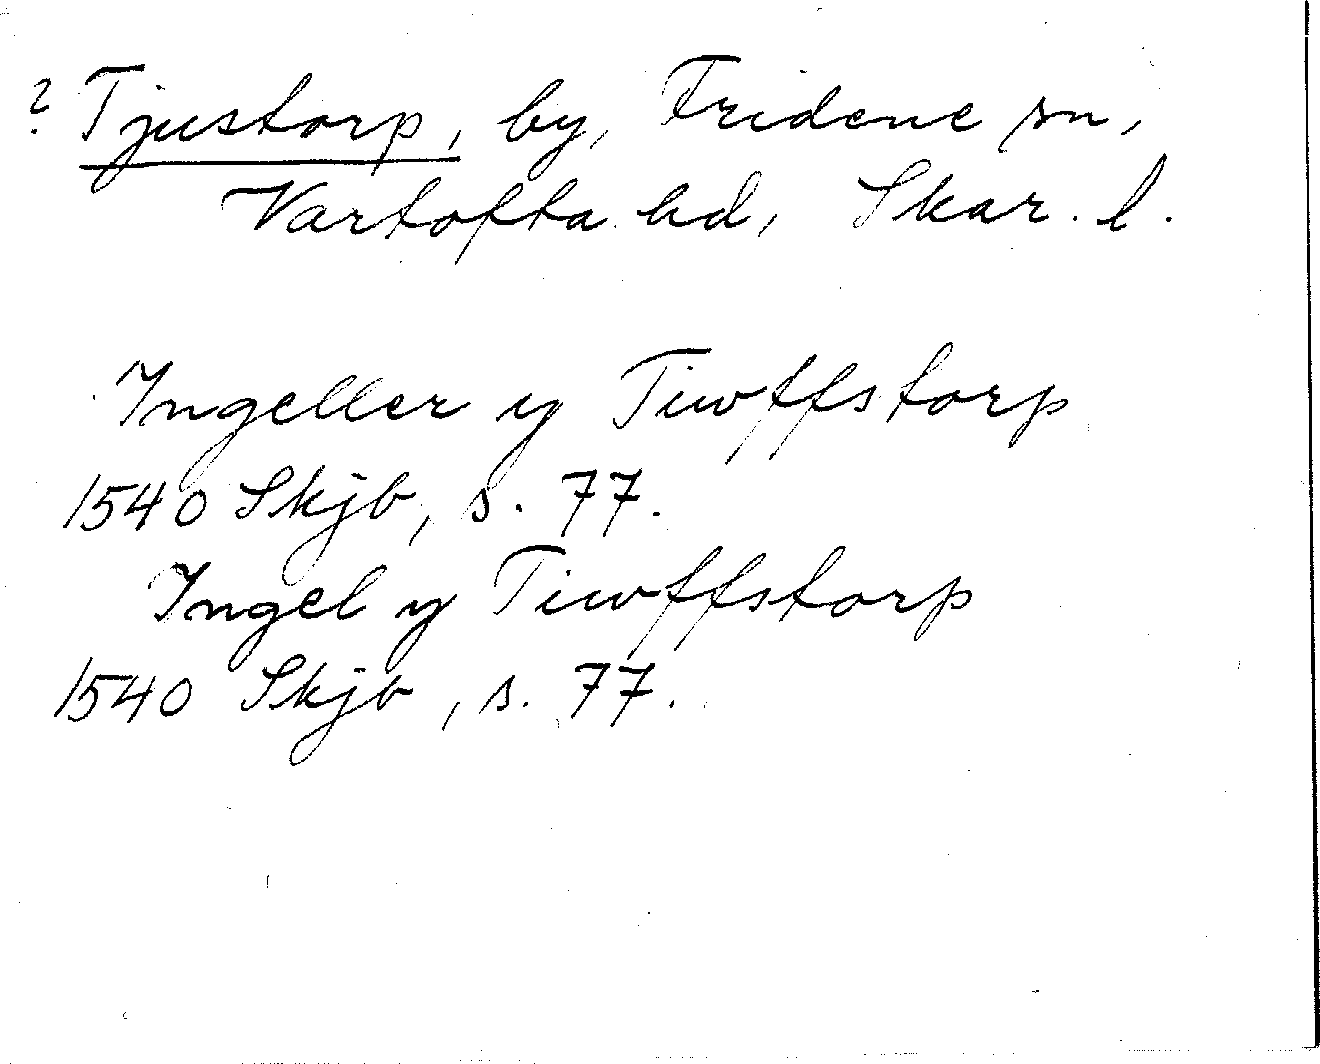 ? Tjustorp, by, Fridene sn,
Vartofta hd, Skar. l.
Ingeller y Tiwffstorp
1540 Skjb, s. 77.
Ingel y Tiwffstorp
1540 Skjb, s. 77.